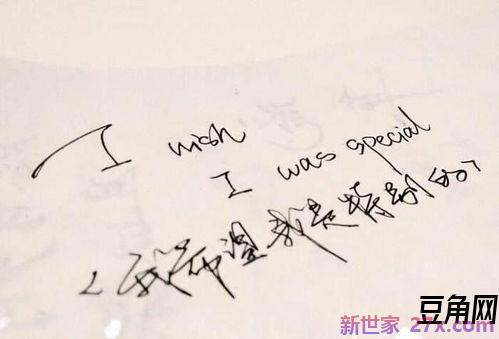 I wish
I was special
<我希望我是特别的>
豆角网
新世家 27x.com